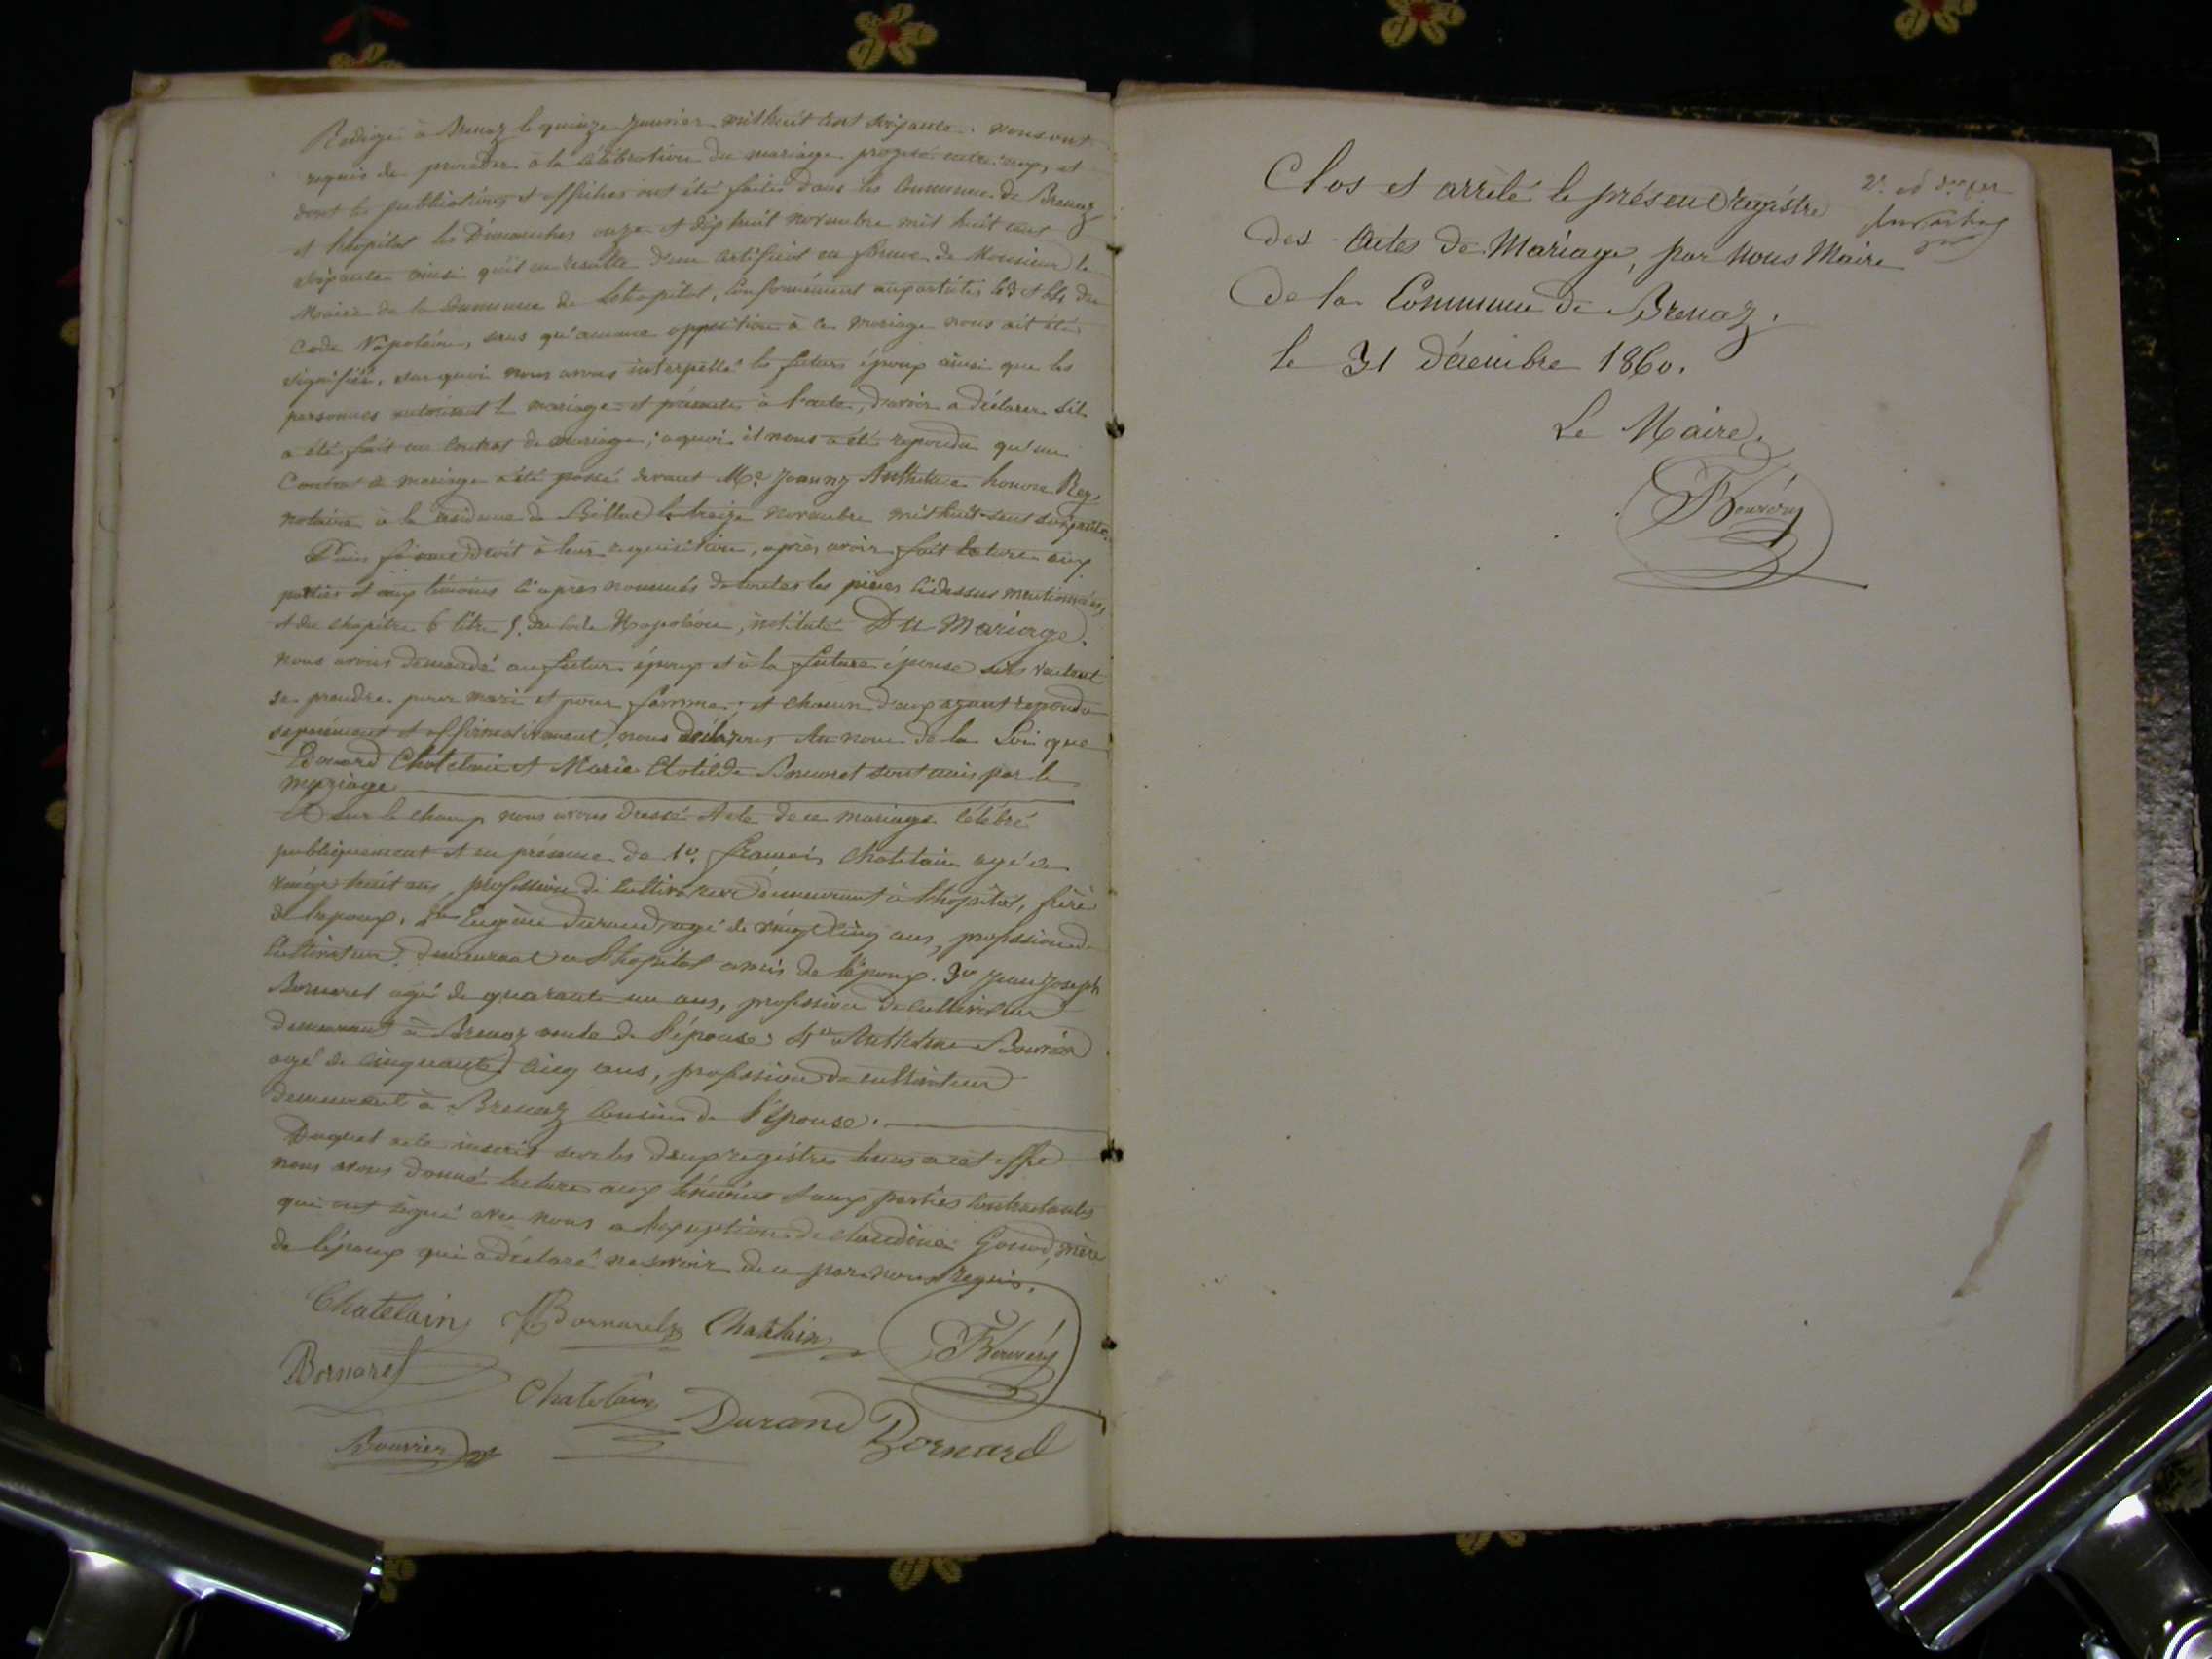 Redigé à Brenaz le quinze janvier mil huit cent soixante. nous ont
requis de proceder à la célébration du mariage projeté entre eux, et
dont les publications et affiches ont été faites dans les Commune de Brenaz
et hopital les Dimanches onze et dix huit novembre mil huit cent
soixante ainsi qu'il en resulte d'un certificat en forme de Monsieur le
Maire de la Commune de Lhopital, Conformément aux articles 63 et 64 du
Code Napoléon, sans qu'aucune opposition à ce mariage nous ait été
signifiée. sur quoi nous avons interpellé les futurs époux ainsi que les
personnes autorisant le mariage et présentes à l'acte, d'avoir a déclarer s'il
a été fait un Contrat de mariage; aquoi il nous a été repondu qu'un
Contrat de mariage a été passé devant Me. Joanny Anthelme honoré Rey,
notaire à la résidence de Billiat le treize novembre mil huit-cent soixante.
Puis faisant droit à leur requisition, après avoir fait lecture aux
parties et aux témoins ci après nommés de toutes les pièces ci dessus mentionnées,
et du chapitre 6 titre 5. du Code Napoléon, intitulé Du Mariage.
nous avons demandé au futur époux et à la future épouse s'ils veulent
se prendre pour mari et pour femme; et chacun d'eux ayant repondu
separément et affirmativement, nous déclarons Au nom de la Loi que
Edouard Chatelain et Marie Clotilde Bornaret sont unis par le
mariage
Et sur le champ nous avons dressé Acte de ce mariage célébré
publiquement et en présence de 1o. francois Chatelain agé de
vingt huit ans, profession de Cultivateur demeurant à Lhopital, frère
de l'epoux. 2o Eugène Durand, agé de vingt cinq ans, profession de
Cultivateur demeurant a Lhopital amis de l'époux. 3o Jean Joseph
Bornaret agé de quarante un ans, profession de Cultivateur
demeurant à Brenaz de l'épouse: 4o Anthelme Bouvier
agé de cinquante cinq ans, profession de cultivateur
demeurant à Brenaz Cousin de l'épouse.
Duquel acte inscrit sur les deux registres tenus a cet effet
nous avons donné lecture aux témoins et aux parties contractantes
qui ont signé avec nous a l'exception de Claudine Gonod, mère
de l'époux qui a déclaré ne savoir de ce par nous requis.
Chatelain Bornarelz Chatelain
Bornaret Chatelain Durand Bornard
Bouvier
2e. et
Clos et arrêté le présent registre
des Actes de Mariage, par Nous Maire
de la Commune de Brenaz.
le 31 Décembre 1860.
Le Maire.